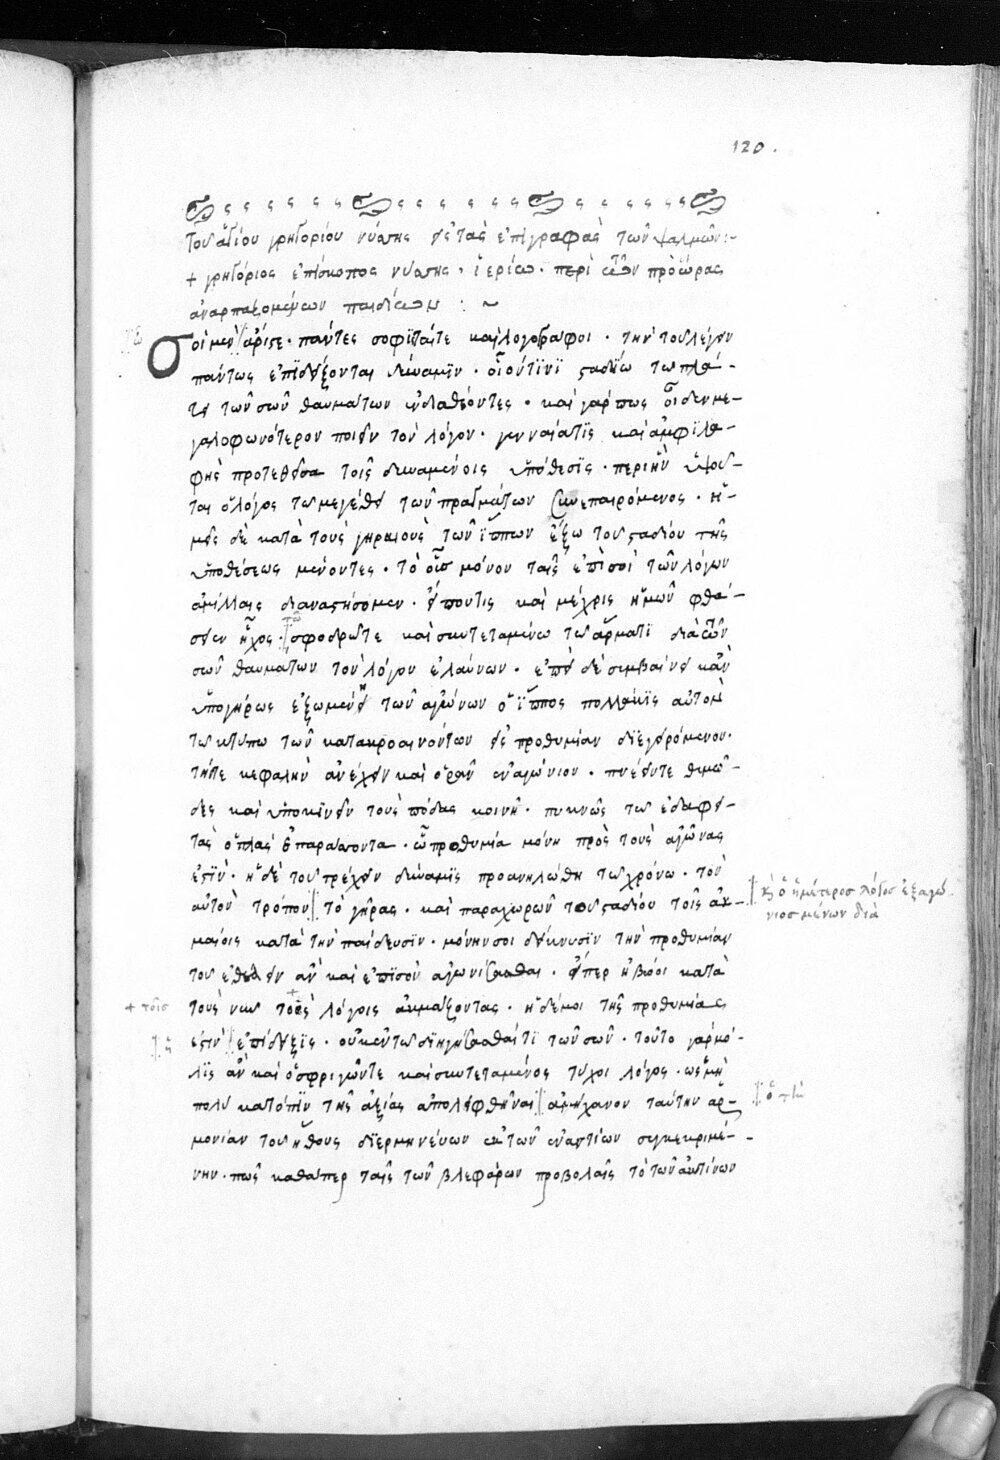 120.
Τοῦ ἁγίου γρηγορίου νύσσης εἰς τὰς ἐπιγραφὰς τῶν ψαλμῶν:-
+ γρηγόριος ἐπίσκοπος νύσσης · ἱερίω · περὶ τῶν πρὸ ὥρας
ἀναρπαζομένων παιδίων : ~
Σοὶ μὲν ἄριστε · πάντες σοφισταί τε καὶ λογογράφοι · τὴν τοῦ λέγειν
πάντως ἐπιδείξονται δύναμιν · οἷόν τινι σταδίω τῶ πλά-
τει τῶν σῶν θαυμάτων ἐνδιαθέοντες · καὶ γάρ πως οἶδεν με-
γαλοφωνότερον ποιεῖν τὸν λόγον · γενναία τις καὶ ἀμφιλα-
φὴς προτεθεῖσα τοῖς δυναμένοις ὑπόθεσις · περὶ ἣν ὑψοῦ-
ται ὁ λόγος τῶ μεγέθει τῶν πραγμάτων συνεπαιρόμενος · ἡ-
μεῖς δὲ κατὰ τοὺς γηραιοὺς τῶν ἵππων ἔξω τοῦ σταδίου τῆς
ὑποθέσεως μένοντες · τὸ οὖς μόνον ταῖς ἐπὶ σοὶ τῶν λόγων
ἁμίλλαις διαναστήσομεν · εἴπου τις καὶ μέχρις ἡμῶν φθά-
σειεν ἦχος · σφοδρῶ τε καὶ συντεταμένω τῶ ἅρματι διὰ τῶν
σῶν θαυμάτων τὸν λόγον ἐλαύνων · ἐπεὶ δὲ συμβαίνει κἂν
ὑπογήρως ἐξωμένη τῶν ἀγώνων ὁ ἵππος πολλάκις αὐτὸν
τῶ κτύπω τῶν κατακροαινόντων εἰς προθυμίαν διεγειρόμενον ·
τήν τε κεφαλὴν ἀνέχειν καὶ ὁρᾶν ἐναγώνιον · πνέειν τε θυμῶ-
δες καὶ ὑποκινεῖν τοὺς πόδας κοινῆ · πυκνῶς τῶ ἐδάφει-
τὰς ὁπλὰς ἐπαράσσοντα · ὧ προθυμία μόνη πρὸς τοὺς ἀγῶνας
ἐστὶν · ἡ δὲ τοῦ τρέχειν δύναμις προανηλώθη τῶ χρόνω · τὸν
αὐτὸν τρόπον τὸ γῆρας · καὶ παραχωρῶν τοῦ σταδίου τοῖς ἀκ-
κ(αὶ) ὁ ἡμέτερος λόγος ἐξαγώ-
νιος μένων διὰ
μαίοις κατὰ τὴν παίδευσιν · μόνην σοι δείκνυσιν τὴν προθυμίαν
τοῦ ἐθέλειν ἂν καὶ ἐπὶ σοῦ ἀγωνίσασθαι · εἴπερ ἡβῶοι κατὰ
+ τοῖς
τοὺς νῦν τοῖς λόγοις ἀκμάζοντας · ἡ δέ μοι τῆς προθυμίας
ἐστὶν ἐπίδειξις · οὐκ ἐν τῶ διηγήσασθαί τι τῶν σῶν · τοῦτο γὰρ μό-
λις ἂν καὶ ὁ σφριγῶν τε καὶ συντεταμένος τύχοι λόγος · ὡς μὴ
πολὺ κατόπιν τῆς ἀξίας ἀπολειφθῆναι ἀμήχανον ταύτην ἁρ-
μονίαν τοῦ ἤθους διερμηνεύων ἐκ τῶν ἐναντίων συγκεκριμέ-
νην · πῶς καθάπερ ταῖς τῶν βλεφάρων προβολαῖς τὸ τῶν ἀκτίνων